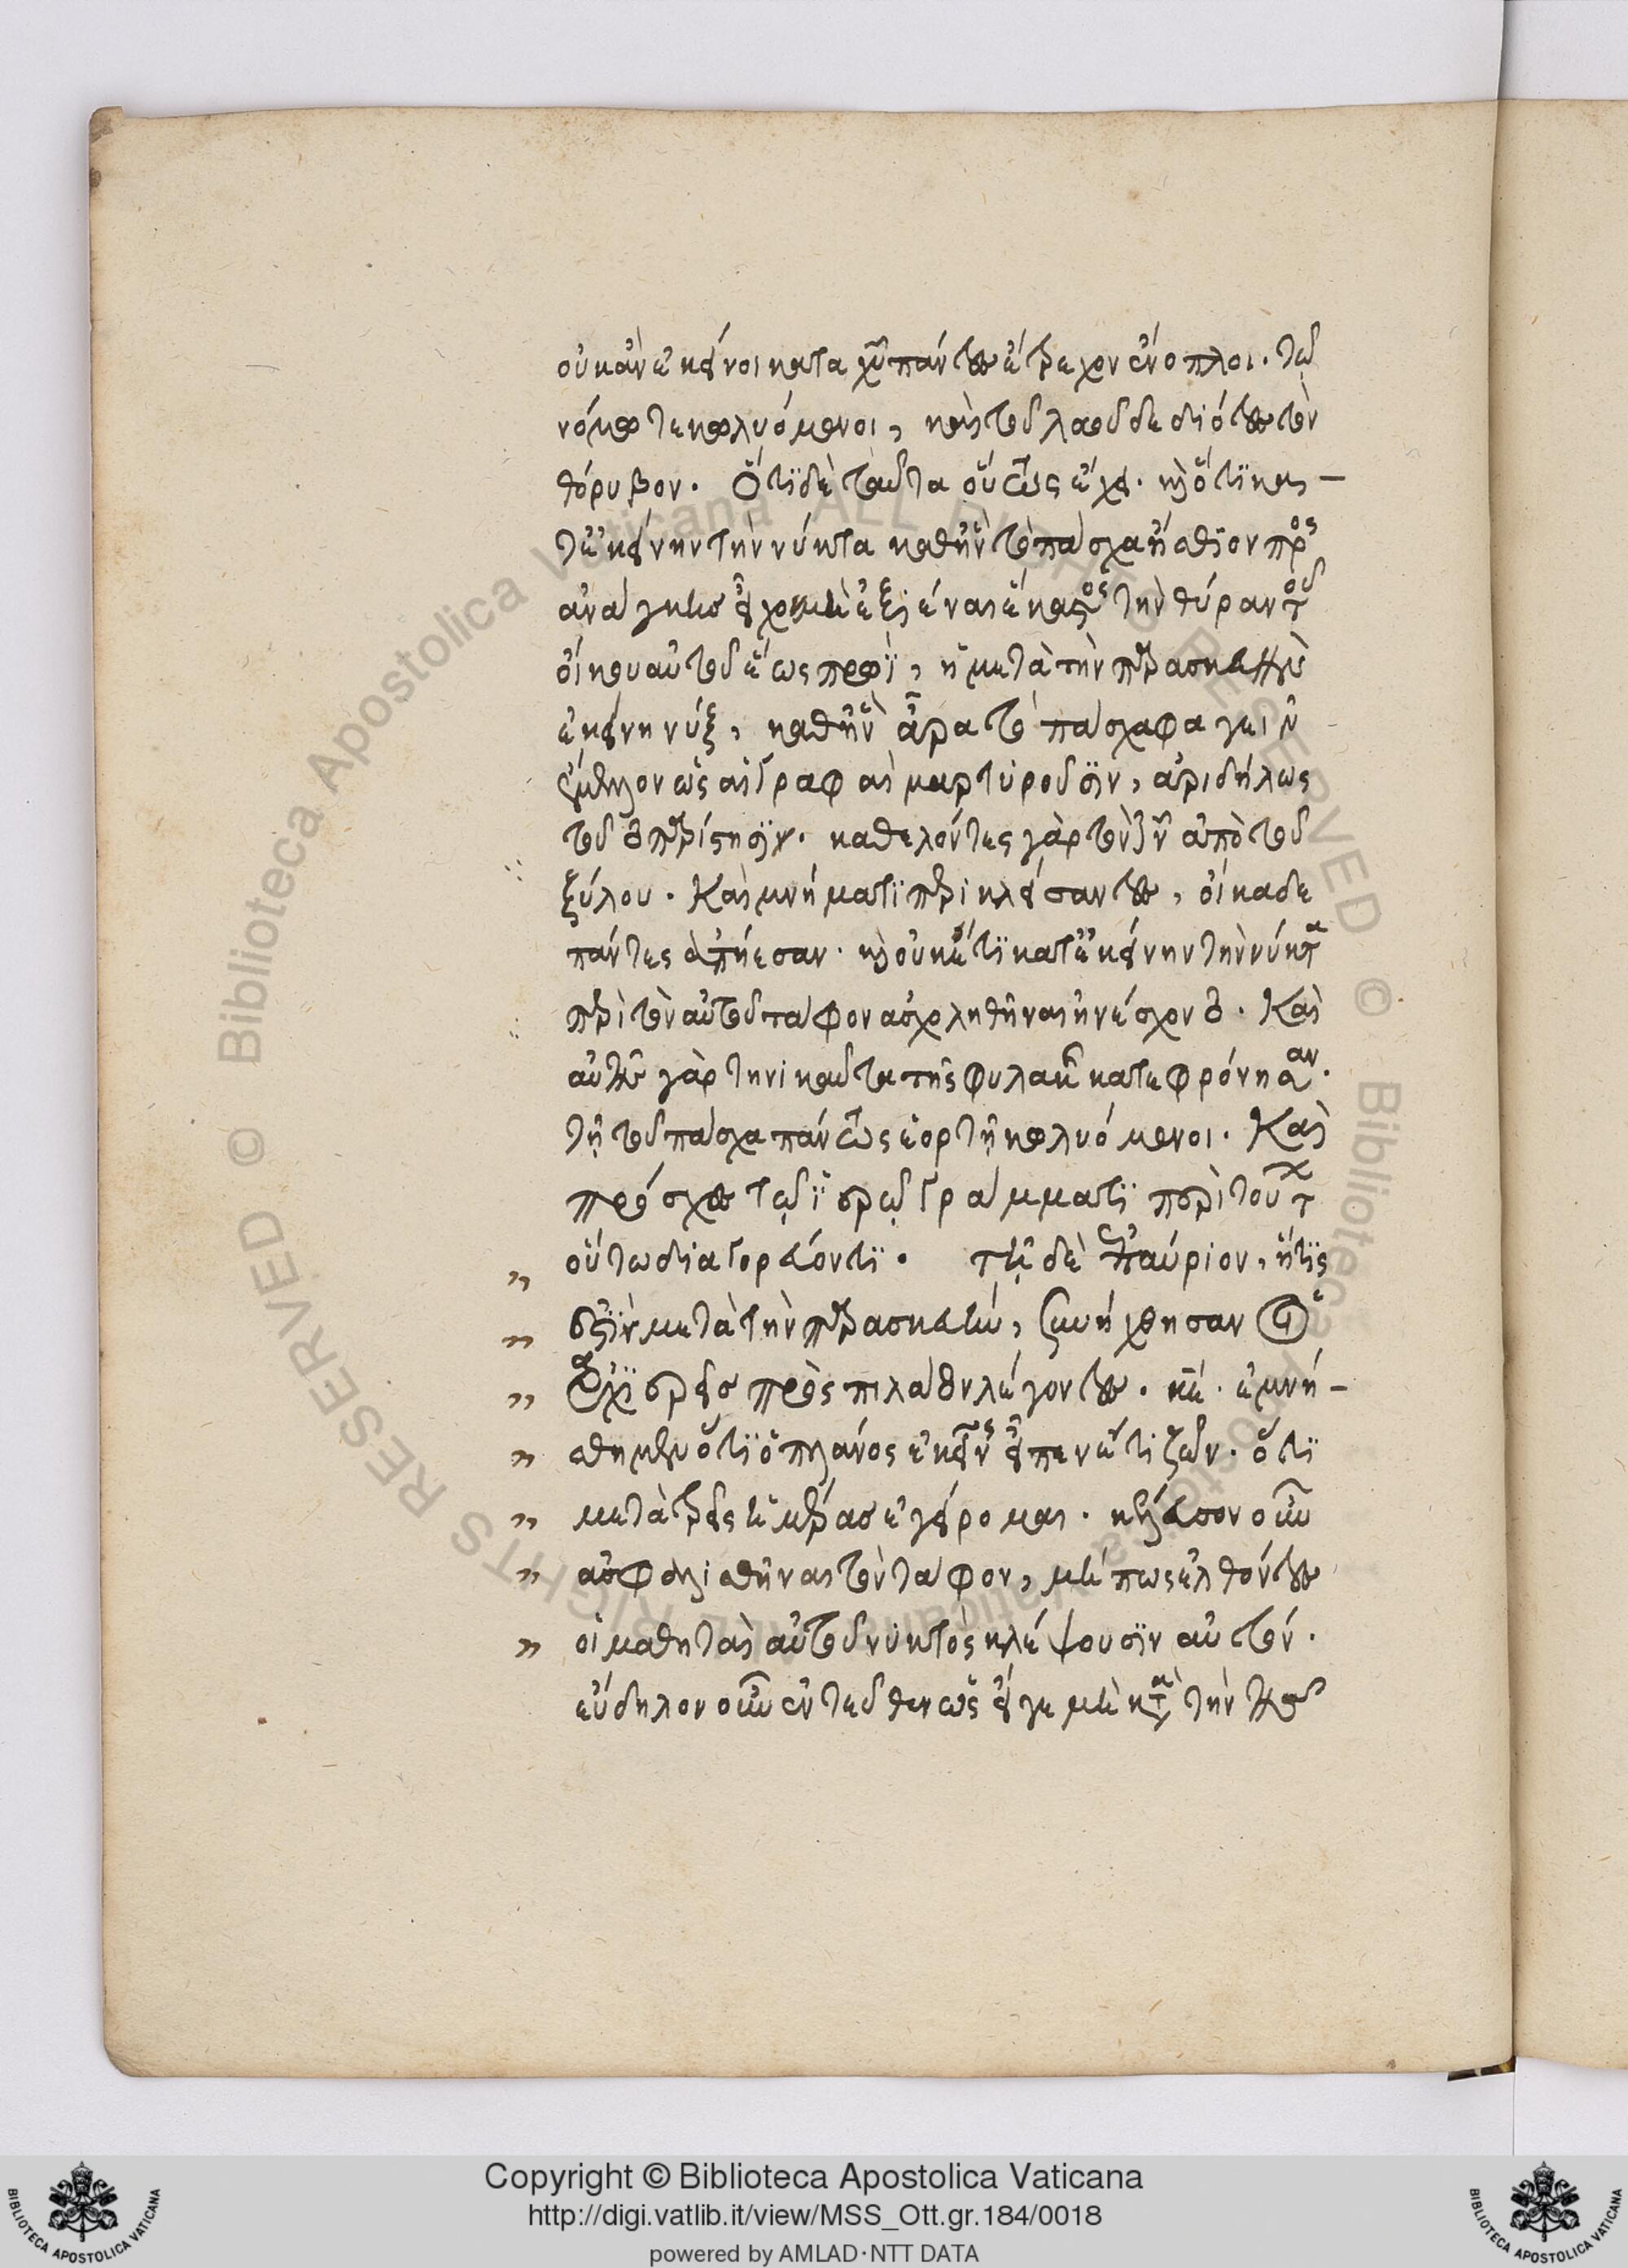 οὐκ ἂν ἐκεῖνοι κατα χῦ πάντες ἔτρεχον ἔνοπλοι. τῶ
νόμω τε κωλυόμενοι, καὶ τοῦ λαοῦ δεδιότες τὸν
θόρυβον. Ὅτι δὲ ταῦτα οὕτως εἶχε. καὶ ὅτι κα
τ' ἐκείνην τὴν νύκτα καθ' ἣν τὸ πάσχα ἤσθιον προς
ἀνάγκης εἶχον μὴ ἐξιέναι ἕκαστος τὴν θύραν τοῦ
οἴκου αὐτοῦ ἕως πρωῒ, ἡ μετὰ τὴν παρασκευὴν
ἐκείνη νύξ, καθ' ἣν ἄρα τὸ πάσχα φαγεῖν
ἔμελλον ὡς αἱ γραφαὶ μαρτυροῦσιν, ἀριδήλως
τοῦτο παρίστησιν. καθελόντες γὰρ τὸν ιν ἀπὸ τοῦ
ξύλου. Καὶ μνήματι περικλείσαντες, οἴκαδε
πάντες ἀπήεσαν. καὶ οὐκέτι κατ' ἐκείνην τὴν νύκτα
περὶ τὸν αὐτοῦ τάφον ἀσχοληθῆναι ἠνέσχοντο. Καὶ
αὐτῆς γὰρ τηνικαῦτα τῆς φυλακῆς κατεφρόνησαν.
τῇ τοῦ πάσχα πάντως ἑορτῇ κωλυόμενοι. Καὶ
πρόσχες τῶ ἱερῶ γράμματι περὶ τούτων
οὕτω διαγορεύοντι. τῇ δὲ ἐπαύριον, ἥτις
ἐστὶν μετὰ τὴν παρασκευὴν, συνήχθησαν οἱ
ἀρχιερεῖς πρὸς πιλάτον λέγοντες. κε. ἐμνή
σθημεν ὅτι ὁ πλάνος ἐκεῖνος εἶπεν ἔτι ζῶν. ὅτι
μετὰ τρεῖς ἡμέρας ἐγείρομαι. κέλευσον οὖν
ἀσφαλισθῆναι τὸν τάφον, μήπως ἐλθόντες
οἱ μαθηταὶ αὐτοῦ νυκτὸς κλέψουσιν αὐτόν.
εὔδηλον οὖν ἐντεῦθεν ὡς εἴγε μὴ κατὰ τὴν τῆς